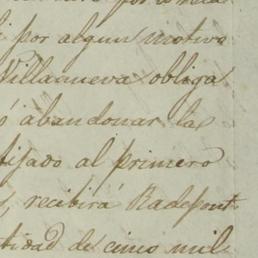 i por algun motivo
Villanueva obliga
ó abandonar la
fijado al primero
, recibirá Radefont
tidad de cinco mil